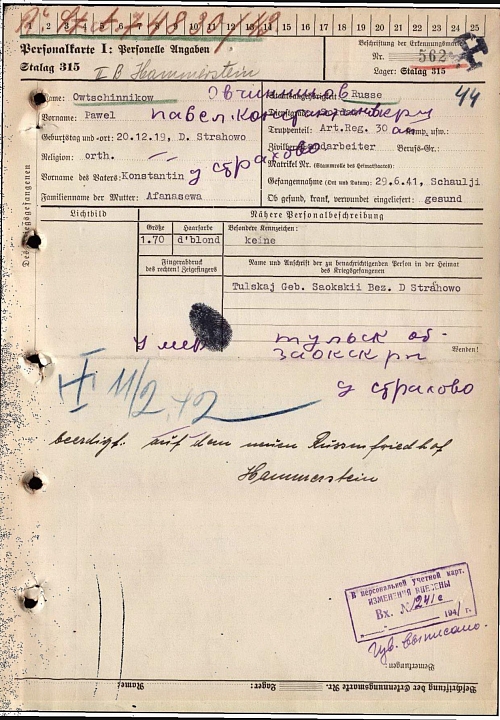 1 2 3 4 5 6 7 8 9 10 11 12 13 14 15 16 17 18 19 20 21 22 23 24 25
Personalkarte I: Personelle Angaben
Beschriftung der Erkennungsmarke
Stalag 315
II B Hammerstein
Nr. 562
Lager: Stalag 315
44
Des Kriegsgefangenen
Name: Owtschinnikow
Овчинников
Staatsangehörigkeit: Russe
Vorname: Pawel
Павел
Dienstgrad:
Geburtstag und -ort: 20.12.19, D. Strahowo
Truppenteil: Art.Reg. 30
Komp. usw.:
Religion: orth.
Zivilberuf: Landarbeiter
Berufs-Gr.:
Matrikel Nr. (Stammrolle des Heimatstaates):
Vorname des Vaters: Konstantin
у страхово
Gefangennahme (Ort und Datum): 29.6.41, Schaulji
Familienname der Mutter: Afanasewa
Ob gesund, krank, verwundet eingeliefert: gesund
Lichtbild
Nähere Personalbeschreibung
Größe
Haarfarbe
Besondere Kennzeichen:
1.70
d'blond
keine
Fingerabdruck
des rechten! Zeigefingers
Name und Anschrift der zu benachrichtigenden Person in der Heimat
des Kriegsgefangenen
Tulskaj Geb. Saokskii Bez. D Strahowo
умер
тульск об
Wenden!
заокскри
11/2 42
у страхово
beerdigt: auf dem neuen Russenfriedhof
Hammerstein
В персональной учетной карт.
ИЗМЕНЕНИЯ ВНЕСЕНЫ
Вх. №
194 г.
Bemerkungen:
Name:
Lager:
Beschriftung der Erkennungsmarke Nr.